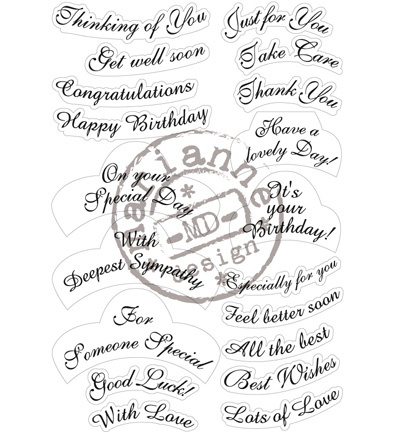 Thinking of You
Get well soon
Congratulations
Happy Birthday
On your
Special Day
With
Deepest Sympathy
For
Someone Special
Good Luck!
With Love
Just for You
Take Care
Thank You
Have a
lovely Day!
It's
your
Birthday!
Especially for you
Feel better soon
All the best
Best Wishes
Lots of Love
marianne
-MD-
design